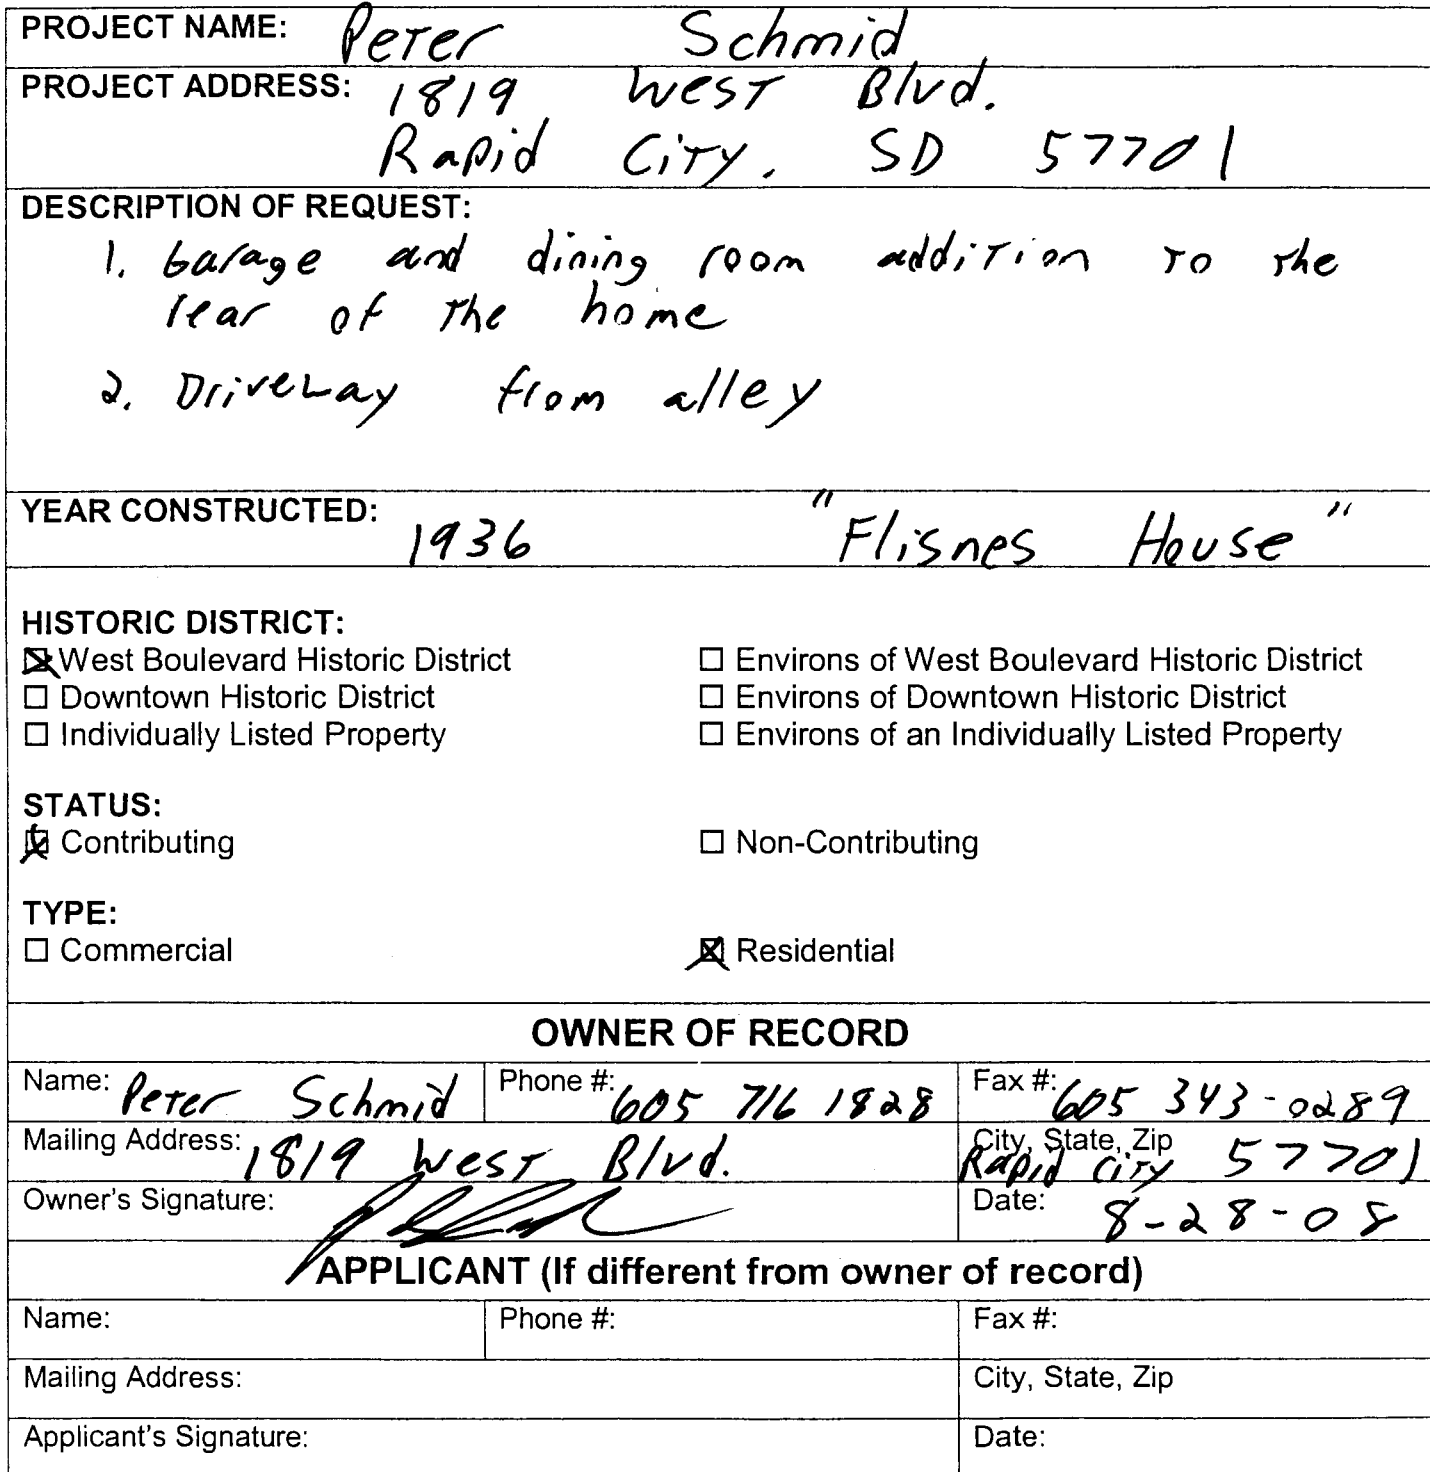 PROJECT NAME: Peter Schmid
PROJECT ADDRESS: 1819 West Blvd.
Rapid City, SD 57701
DESCRIPTION OF REQUEST:
1. Garage and dining room addition to the
rear of the home
2. Driveway from alley
YEAR CONSTRUCTED: 1936 "Flisnes House"
HISTORIC DISTRICT:
☒ West Boulevard Historic District ☐ Environs of West Boulevard Historic District
☐ Downtown Historic District ☐ Environs of Downtown Historic District
☐ Individually Listed Property ☐ Environs of an Individually Listed Property
STATUS:
☒ Contributing ☐ Non-Contributing
TYPE:
☐ Commercial ☒ Residential
OWNER OF RECORD
Name: Peter Schmid Phone #: 605 716 1828 Fax #: 605 343-0289
Mailing Address: 1819 West Blvd. City, State, Zip Rapid City 57701
Owner's Signature: Date: 8-28-08
APPLICANT (If different from owner of record)
Name: Phone #: Fax #:
Mailing Address: City, State, Zip
Applicant's Signature: Date: